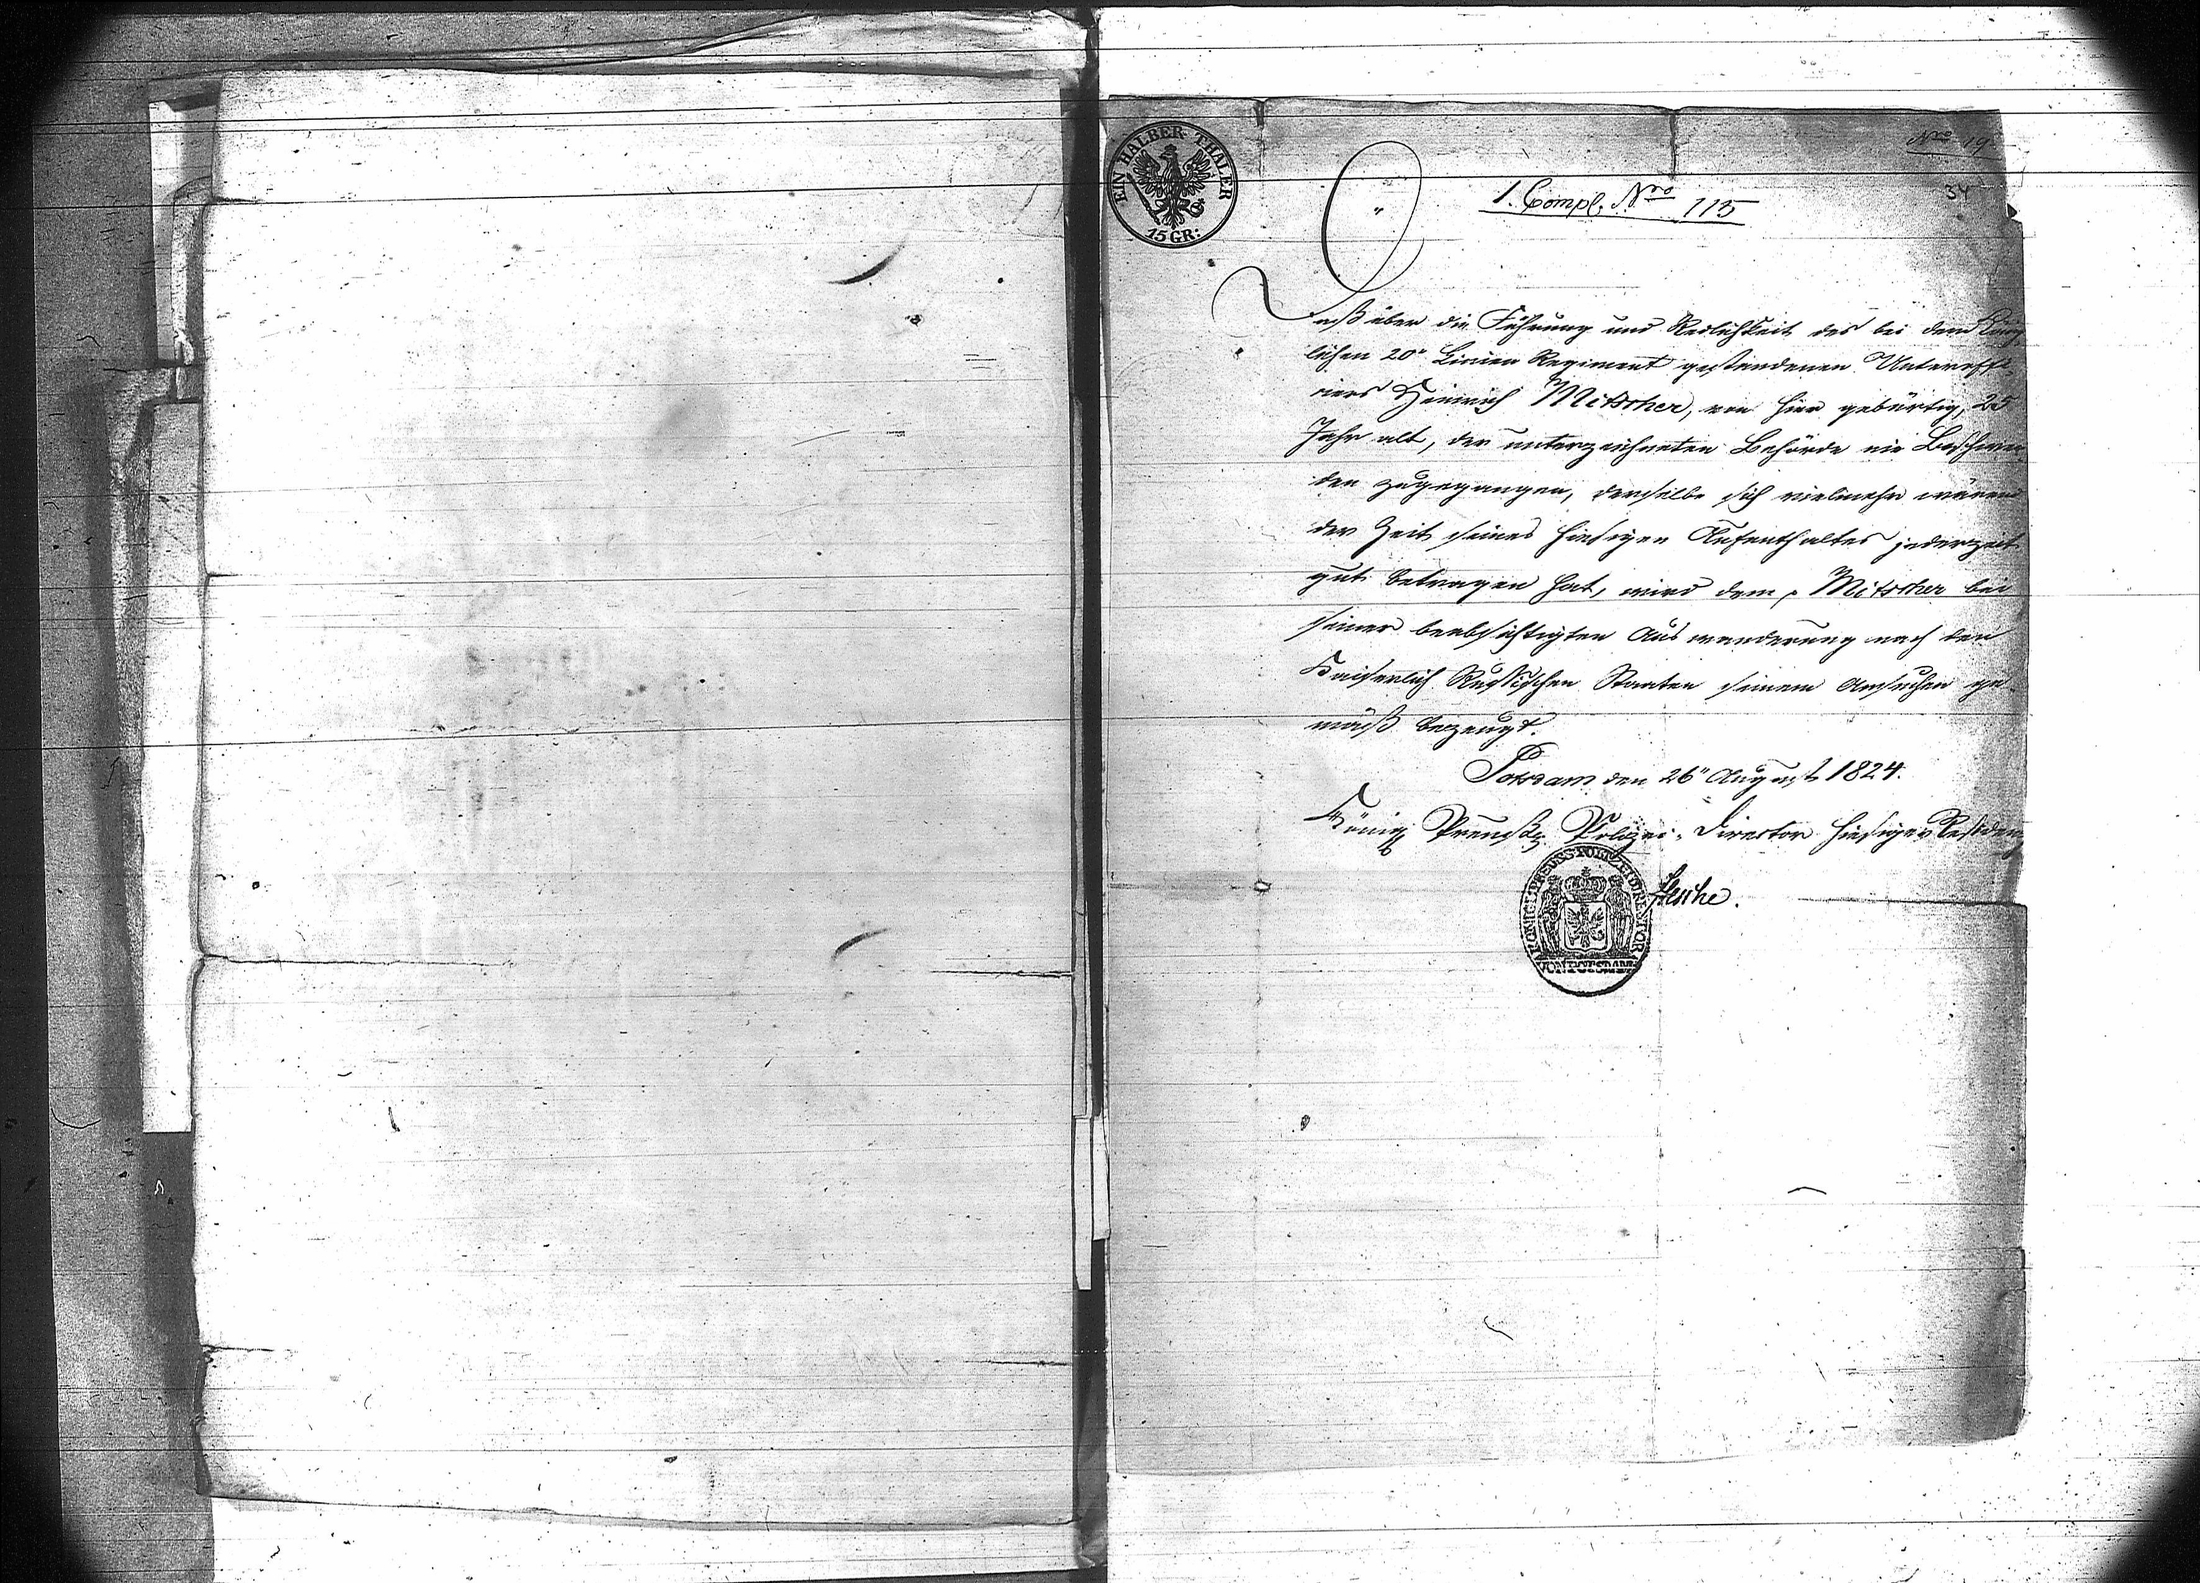 Nro 19
34
EIN HALBER THALER
15 GR:
1. Compl. Nro 115
Daß über die Führung und Redlichkeit des bei dem König
lichen 20n Linien Regiment gestandenen Unteroffi
ciers Heinrich Mitscher, von hier gebürtig, 25
Jahr alt, der unterzeichneten Behörde nie Beschwer
den zugegangen, derselbe sich vielmehr während
der Zeit seines hiesigen Aufenthaltes jederzeit
gut betragen hat, wird dem p Mitscher bei
seiner beabsichtigten Auswanderung nach den
Kaiserlich Russischen Staaten seinem Ansuchen ge
mäß bezeugt.
Potsdam den 26n August 1824.
Königl Preuß Polizei-Director hiesiger Residenz
KÖNIGL: PREUSS: POLIZEI DIRECTOR
VON POTSDAM